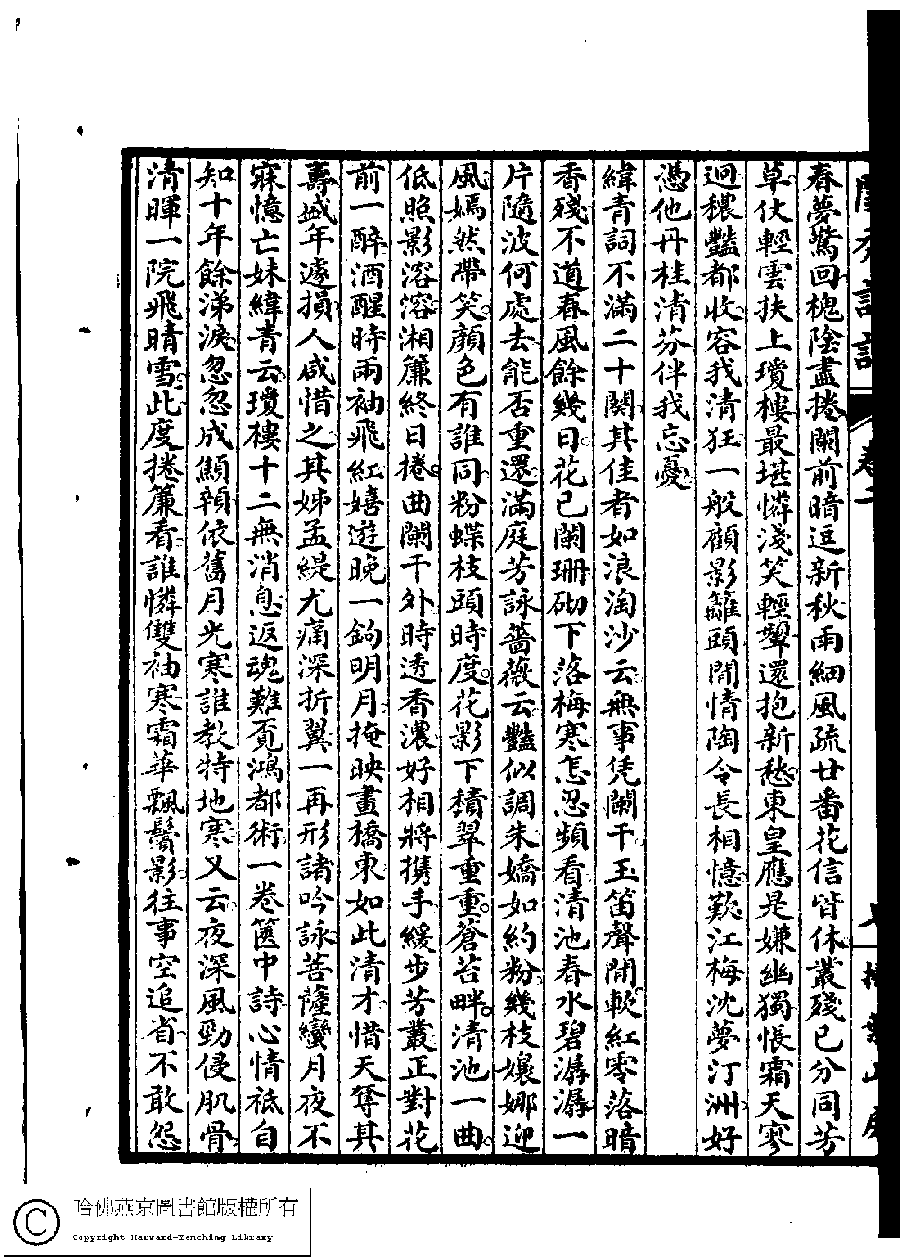 閨秀詞話 卷二
春夢驚回槐陰盡捲闌前暗逗新秋雨細風疏廿番花信皆休叢殘已分同芳
草仗輕雲扶上瓊樓最堪憐淺笑輕顰還抱新愁東皇應是嫌幽獨悵霜天寥
迥穠豔都收容我清狂一般顧影籬頭閒情陶令長相憶歎江梅沈夢汀洲好
憑他丹桂清芬伴我忘憂
緯青詞不滿二十闋其佳者如浪淘沙云無事凭闌干玉笛聲閒輭紅零落暗
香殘不道春風餘幾日花已闌珊砌下落梅寒怎忍頻看清池春水碧潺潺一
片隨波何處去能否重還滿庭芳詠薔薇云豔似調朱嬌如約粉幾枝嬝娜迎
風嫣然帶笑顏色有誰同粉蝶枝頭時度花影下積翠重重蒼苔畔清池一曲
低照影溶溶湘簾終日捲曲闌干外時透香濃好相將攜手緩步芳叢正對花
前一醉酒醒時兩袖飛紅嬉遊晚一鉤明月掩映畫橋東如此清才惜天奪其
壽盛年遽損人咸惜之其姊孟緹尤痛深折翼一再形諸吟詠菩薩蠻月夜不
寐憶亡妹緯青云瓊樓十二無消息返魂難覓鴻都術一卷篋中詩心情祗自
知十年餘涕淚忽忽成顦顇依舊月光寒誰教特地寒又云夜深風勁侵肌骨
清暉一院飛晴雪此度捲簾看誰憐雙袖寒霜華飄鬢影往事空追省不敢怨
哈佛燕京圖書館版權所有
Copyright Harvard-Yenching Library